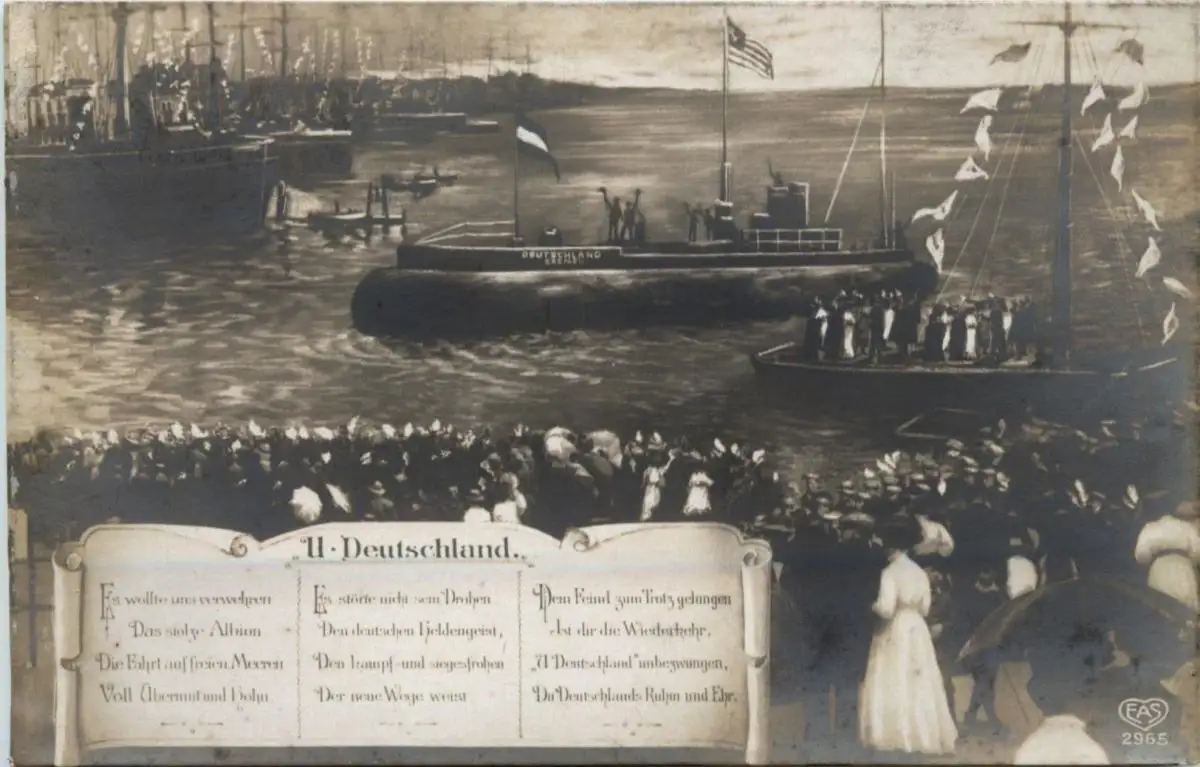 DEUTSCHLAND
BREMEN
„U-Deutschland.„
Es wollte uns verwehren
Das stolze Albion
Die Fahrt auf freien Meeren
Voll Übermut und Hohn.
Es störte nicht sein Drohen
Den deutschen Heldengeist,
Den kampf- und siegesfrohen
Der neue Wege weist
Dem Feind zum Trotz gelungen
Ist dir die Wiederkehr,
„U Deutschland" unbezwungen,
Du Deutschlands Ruhm und Ehr.
EAS
2965